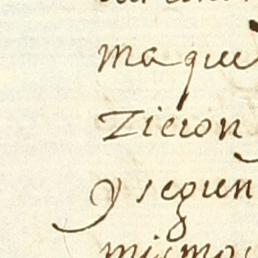 ma que
zieron
y seguen
mismo